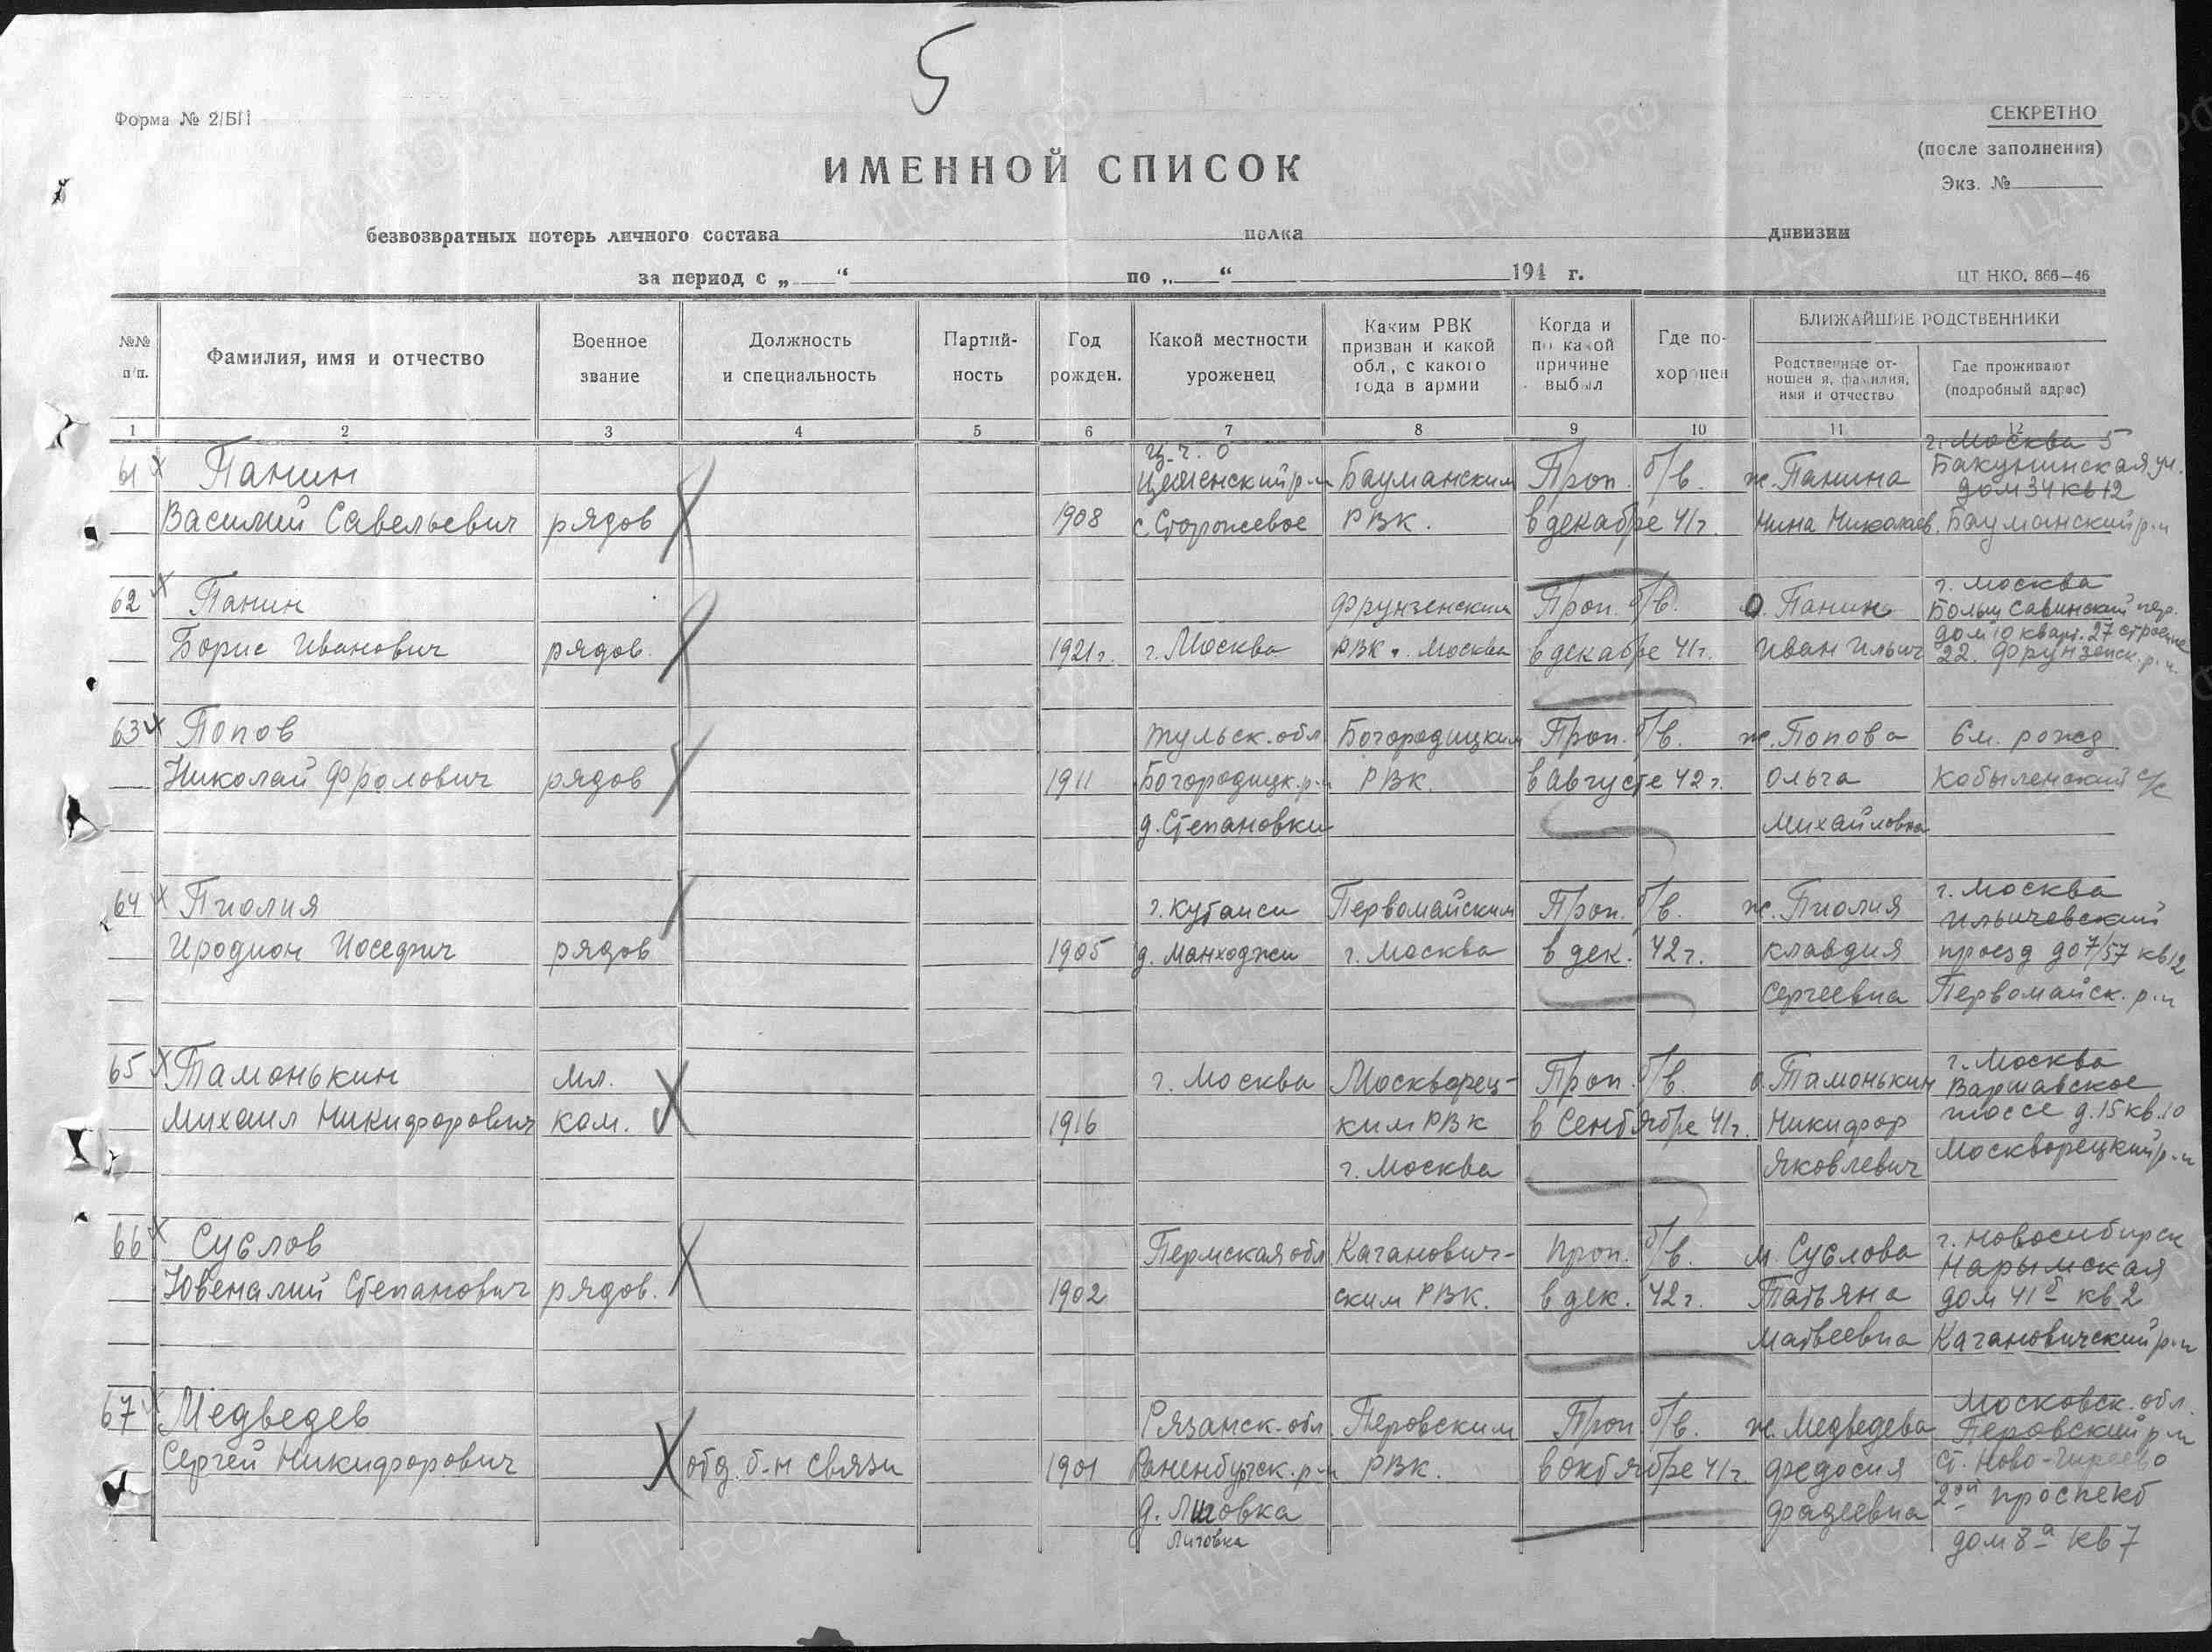 5
Форма № 2/БП
СЕКРЕТНО
(после заполнения)
Экз. №
ИМЕННОЙ СПИСОК
безвозвратных потерь личного состава полка дивизии
за период с „ “ по „ “ 194 г.
ЦТ НКО. 866—46
№№ п/п.
Фамилия, имя и отчество
Военное звание
Должность и специальность
Партийность
Год рожден.
Какой местности уроженец
Каким РВК призван и какой обл., с какого года в армии
Когда и по какой причине выбыл
Где похоронен
БЛИЖАЙШИЕ РОДСТВЕННИКИ
Родственные отношения, фамилия, имя и отчество
Где проживают (подробный адрес)
1 2 3 4 5 6 7 8 9 10 11 12
г. Москва 5
ц.ч.о Бакунинская ул.
61 Панин р-н Бауманским Проп. б/в. ж. Панина дом 34 кв 12
Василий Савельевич рядов 1908 с. Сторожевое РВК. в декабре 41г. Нина Николаев. Бауманский р-н
г. Москва
62 Панин Фрунзенским Проп. б/в. о. Панин Больш Савинский пер.
дом 10 кварт. 27 строение
Борис Иванович рядов. 1921г. г. Москва РВК г. Москва в декабре 41г. Иван Ильич 22. Фрунзенск. р-н
63 Попов Тульск. обл Богородицким Проп. б/в. ж. Попова б м. рожд
Николай Фролович рядов 1911 Богородицк. р-н РВК. в августе 42г. Ольга Кобыленский с/с
д. Степановки Михайловна
г. Москва
64 Пиолия г. Кутаиси Первомайским Проп. б/в. ж. Пиолия Ильичевский
Иродион Иосефич рядов 1905 д. Манходжи г. Москва в дек. 42г. Клавдия проезд до 7/57 кв 12
Сергеевна Первомайск. р-н
г. Москва
65 Тамонькин Мл. г. Москва Москворец- Проп. б/в. о. Тамонькин Варшавское
шоссе д. 15 кв. 10
Михаил Никифорович ком. 1916 ким РВК в Сентябре 41г. Никифор
г. Москва Яковлевич Москворецкий р-н
66 Суслов Пермская обл Каганович- проп. б/в. м. Суслова г. Новосибирск
Нарымская
Ювеналий Степанович рядов. 1902 ским РВК. в дек. 42г. Татьяна дом 41а кв 2
Матвеевна Кагановичский р-н
Московск. обл.
67 Медведев Рязанск. обл Перовским Проп б/в. ж. Медведева Перовский р-н
Сергей Никифорович отд. б-н связи 1901 Раненбургск. р-н РВК. в октябре 41г. Федосия ст. Ново-Гиреево
2ой проспект
д. Лиговка Фадеевна
Лиговка дом 8а кв 7